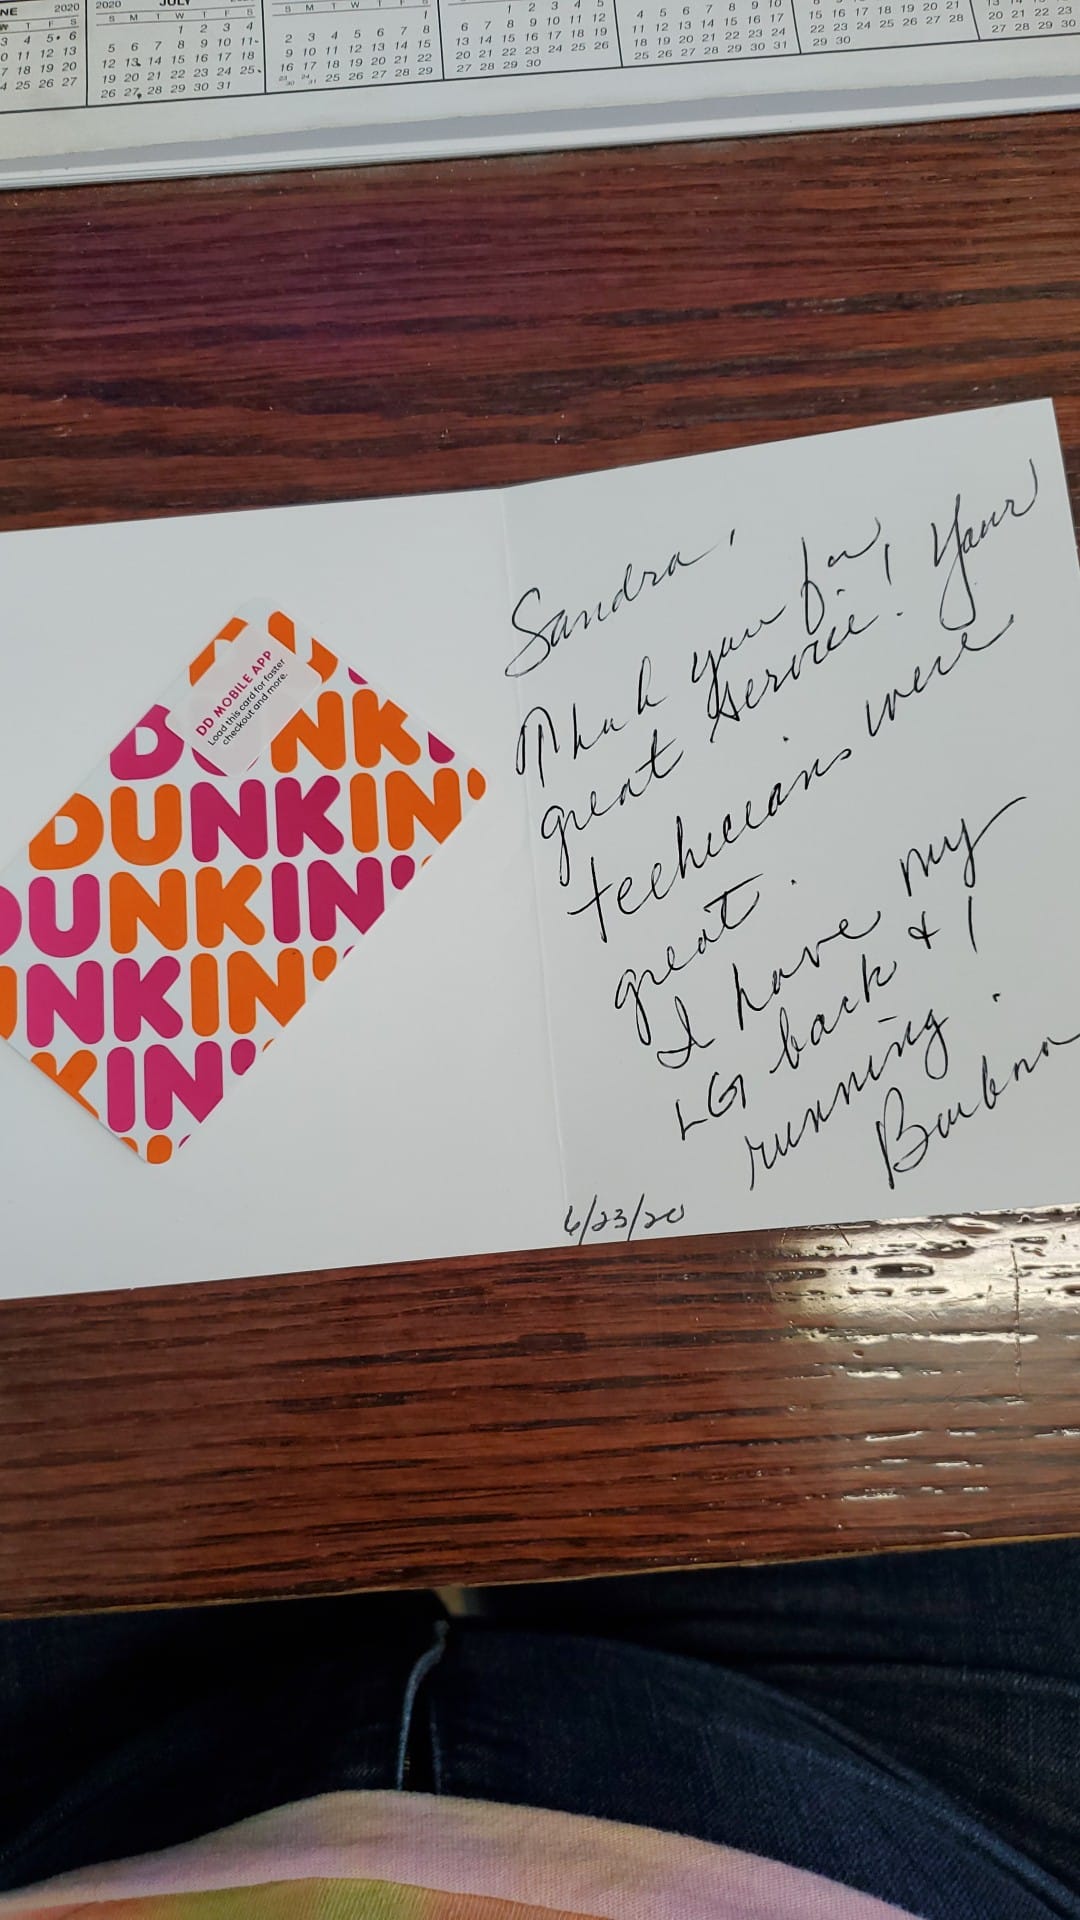 NE 2020
W T F S
3 4 5 6
10 11 12 13
17 18 19 20
24 25 26 27
2020 JULY
S M T W T F S
1 2 3 4
5 6 7 8 9 10 11
12 13 14 15 16 17 18
19 20 21 22 23 24 25
26 27 28 29 30 31
S M T W T F S
1
2 3 4 5 6 7 8
9 10 11 12 13 14 15
16 17 18 19 20 21 22
23/30 24/31 25 26 27 28 29
1 2 3 4 5
6 7 8 9 10 11 12
13 14 15 16 17 18 19
20 21 22 23 24 25 26
27 28 29 30
4 5 6 7 8 9 10
11 12 13 14 15 16 17
18 19 20 21 22 23 24
25 26 27 28 29 30 31
15 16 17 18 19 20 21
22 23 24 25 26 27 28
29 30
20 21 22 23
27 28 29 30
DD MOBILE APP
Load this card for faster
checkout and more.
D NK
DUNKIN'
DUNKIN'
UNKIN'
KIN'
Sandra,
Thank you for
great service! Your
technicians were
great.
I have my
LG back &
running!
Barbara
6/23/20